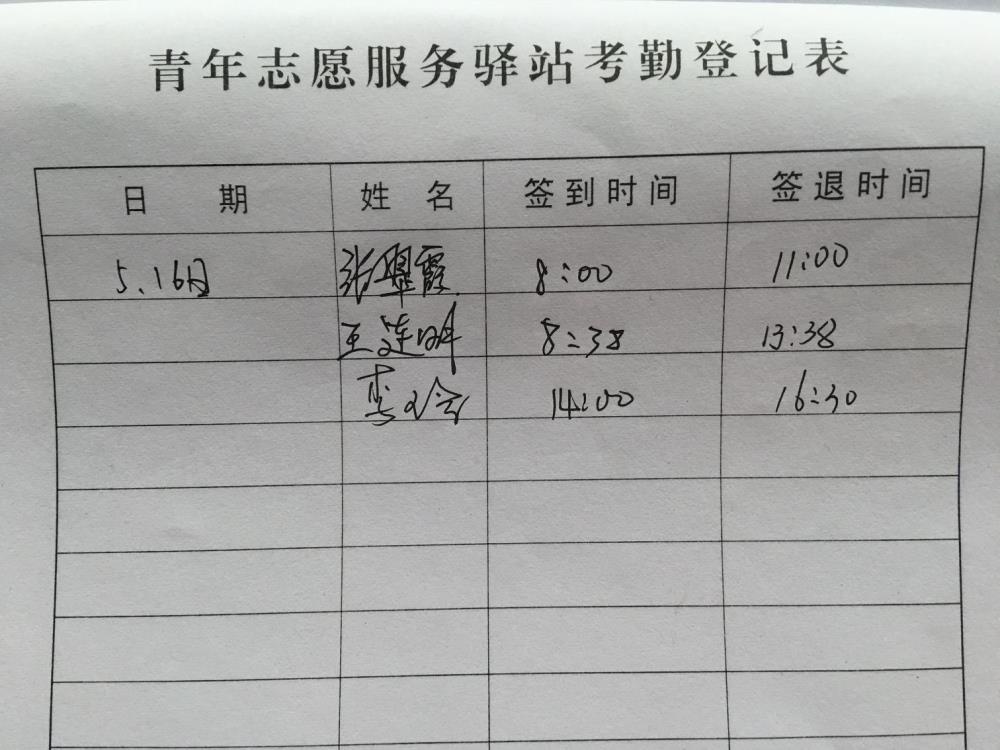 青年志愿服务驿站考勤登记表
日 期 姓 名 签到时间 签退时间
5.16日 张翠霞 8:00 11:00
王莲明 8:38 13:38
李 14:00 16:30